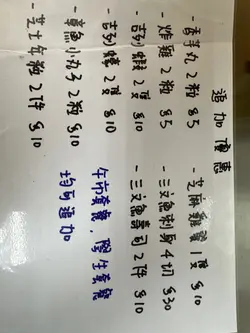 追加優惠
- 香芋丸2粒 $5
- 炸雞2粒 $5
- 吉列蝦2隻 $10
- 吉列蠔2隻 $10
- 章魚小丸子2粒 $10
- 芝士 2件 $10
- 芝麻雞翼1隻 $10
- 三文魚刺身4切 $30
- 三文魚壽司2件 $10
午市套餐, 學生套餐
均可追加